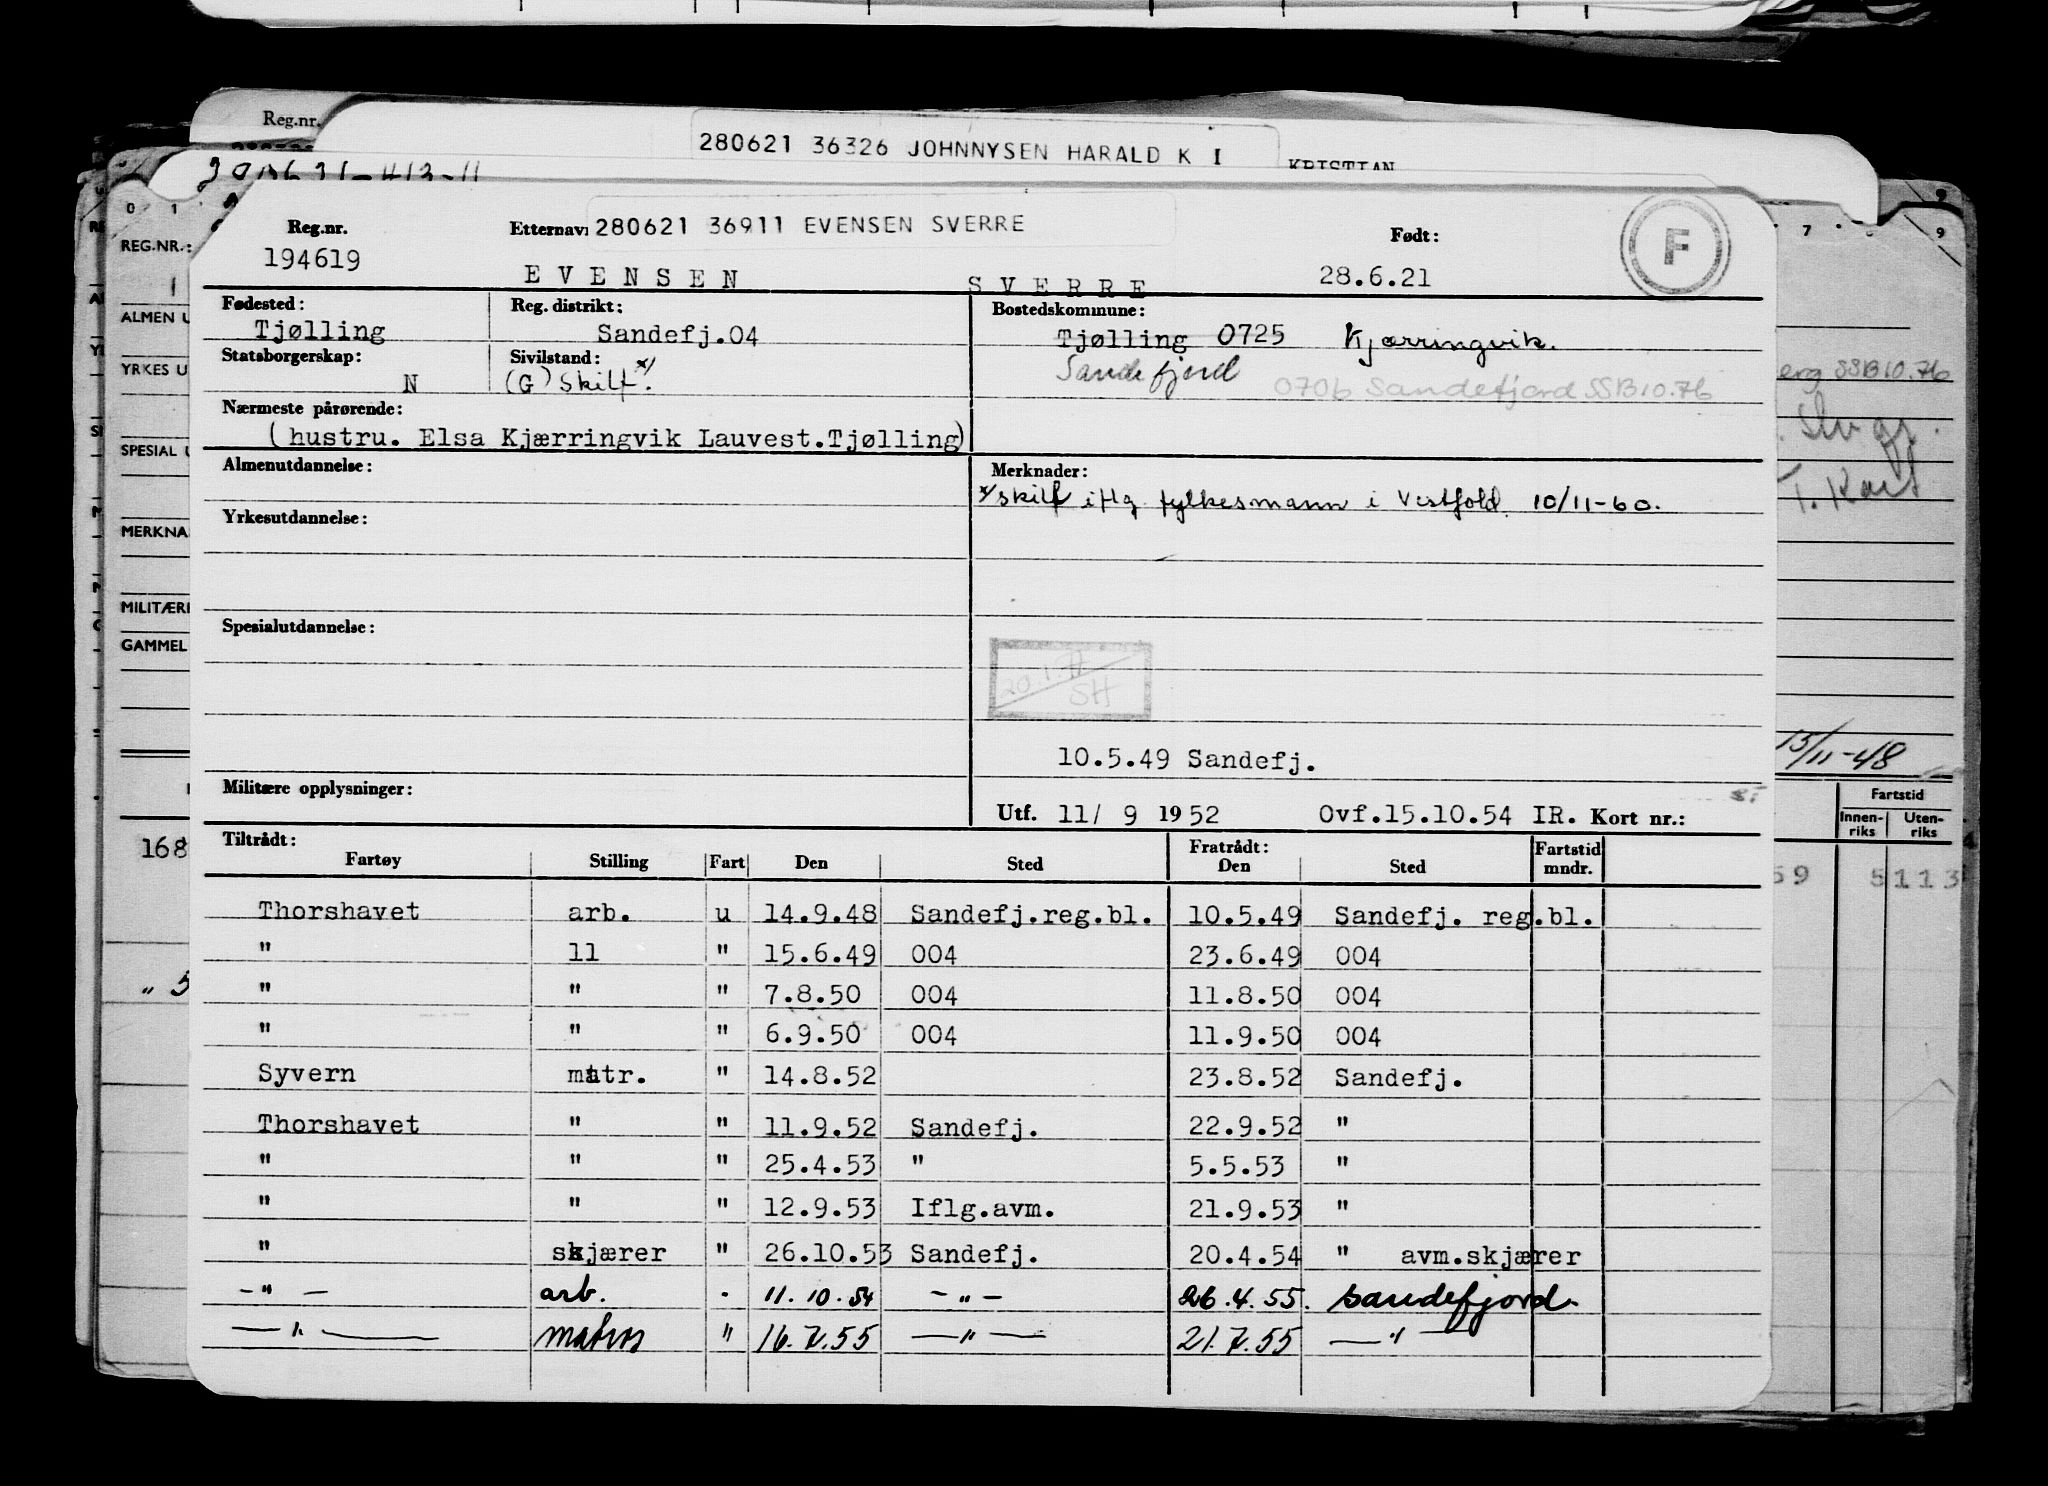 Reg.nr.
280621 36326 JOHNNYSEN HARALD K I
KRISTIAN
0 1
7 9
REG.NR.:
ALMEN U
YRKES U
SPECIAL U
MERKNA
MILITÆRE
GAMMEL
Reg.nr.
194619
Etternavn
280621 36911 EVENSEN SVERRE
Født:
F
E V E N S E N S V E R R E 28.6.21
Fødested: Tjølling
Reg. distrikt: Sandefj.04
Bostedskommune:
Tjølling 0725 Kjærringvik.
Statsborgerskap: N
Sivilstand: x/
(G) Skilt.
Sandefjord
0706 Sandefjord SSB 10.76
erg SSB 10.76
Nærmeste pårørende:
(hustru. Elsa Kjærringvik Lauvest.Tjølling)
Almenutdannelse:
Merknader:
x/ skilt iflg fylkesmann i Vestfold. 10/11-60.
Yrkesutdannelse:
Spesialutdannelse:
20.1.77
SH
10.5.49 Sandefj.
13/11-48
Militære opplysninger:
Utf. 11/ 9 1952 Ovf.15.10.54 IR. Kort nr.:
Fartstid
Innen-riks Uten-riks
Tiltrådt: Fratrådt:
Fartøy Stilling Fart Den Sted Den Sted Fartstid mndr.
168
59 5113
Thorshavet arb. u 14.9.48 Sandefj.reg.bl. 10.5.49 Sandefj. reg.bl.
" ll " 15.6.49 004 23.6.49 004
" " " 7.8.50 004 11.8.50 004
" 5
" " " 6.9.50 004 11.9.50 004
Syvern matr. " 14.8.52 23.8.52 Sandefj.
Thorshavet " " 11.9.52 Sandefj. 22.9.52 "
" " " 25.4.53 " 5.5.53 "
" " " 12.9.53 Iflg.avm. 21.9.53 "
" skjærer " 26.10.53 Sandefj. 20.4.54 " avm.skjærer
— " — arb. . 11.10.54 — " — 26.4.55. Sandefjord.
— " — matros " 16.7.55 — " — 21.7.55 — " —